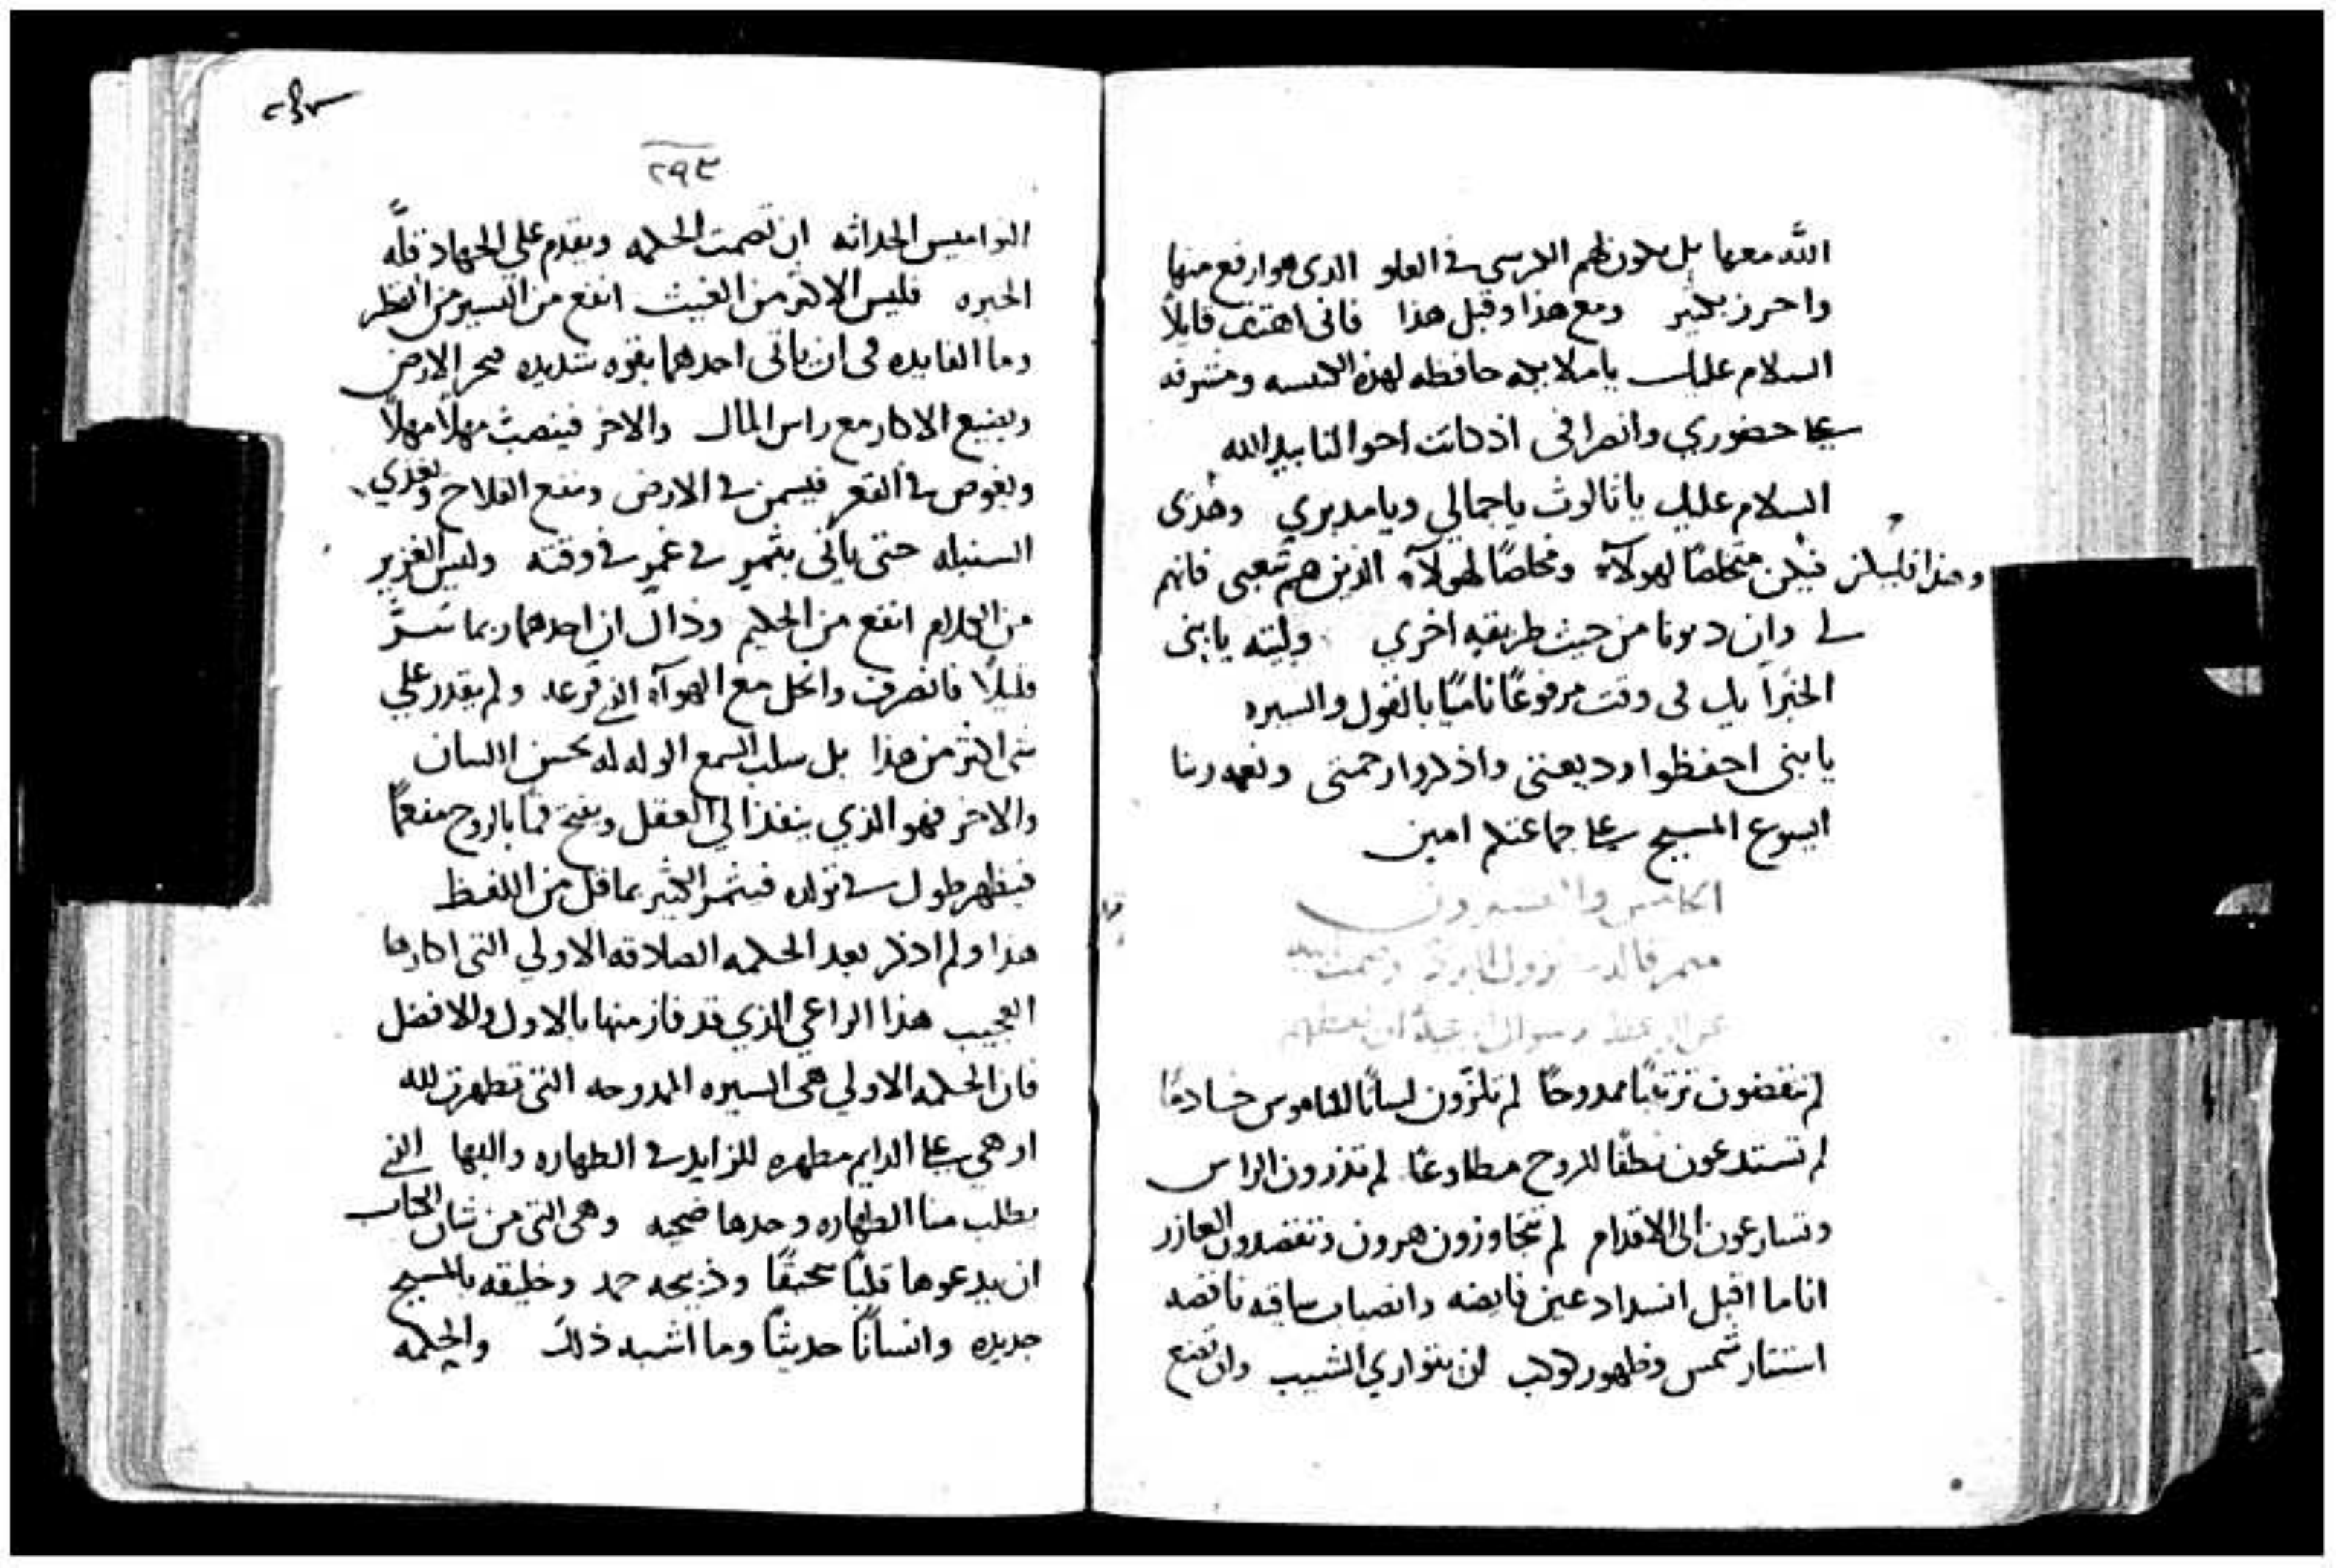 الله معها بل يكون لهم الكرسي في العلو الذي هو ارفع منها
واحرز بكثير ومع هذا وقبل هذا فاني اهتف قايلاً
السلام عليك يا ملايكه حافظه لهذه الكنيسه ومشرفه
على حضوري وانصرافي اذ كانت احوالنا بيد الله
السلام عليك يا ثالوث يا جمالي ويا مديري وهذي
وهذا فليكن فيكن متخلصًا لهولآء ومخلصًا لهولآء الذين هم شعبي فانهم
لي وان دبرنا من حيث طريقه اخري وليته يا بني
الخبرا يك في وقت مرفوعًا ناميًا بالقول والسيره
يا بني احفظوا وديعتي واذكروا رحمتي ونعمه ربنا
ايسوع المسيح على جماعتكم امين
الخامس والعشرون
ميمر قاله
لم تنقضون ترتيبًا ممدوحًا لم تلزّون لسانًا للناموس خادمًا
لم تستدعون نطقًا للروح مطاوعًا لم تذرون الراس
وتسارعون الى الاقدام لم تتجاوزون هرون وتقصدون العازر
انا ما اقبل انسداد عين فايضه وانصباب ساقيه ناقصه
استتار شمس وظهور كوكب ان يتواري الشيب وان تضع
٢٩٣
النواميس الحداثه ان تصمت الحكمه ويقدم على الجهاد قلّه
الخبره فليس الاكثر من الغيث انفع من اليسير من القطر
وما الفايده في ان ياتي احدهما بقوه شديده فيجر الارض
ويضيع الاكار مع راس المال والاخر فينصب مهلاً مهلاً
ويغوص في القعر فيسمن في الارض وينفع الفلاح ويغذي
السنبله حتى ياتي بثمرٍ في غمرٍ في وقته وليس الغزير
من الكلام انفع من الحكيم وذاك ان احدهما ربما سَرَّ
قليلاً فانصرف وانحل مع الهوآء الذي قرعه ولم يقدر على
شي اكثر من هذا بل سلب السمع الوله له بحسن اللسان
والاخر فهو الذي ينفذ الى العقل ويفتح فمًا بالروح مفعمًا
فيظهر طول في تولده فيثمر الكثير بما قل من اللفظ
هذا ولم اذكر بعد الحكمه الصادقه الاولي التي اكارها
العجيب هذا الراعي الذي قد فاز منها بالاول والافضل
فان الحكمه الاولي هي السيره الممدوحه التي تطهرت لله
او هي على الدايم مطهره للزايد في الطهاره والبها الذي
يطلب منا الطهاره وحدها ضحيه وهي التي من شان الكتاب
ان يدعوها قلبًا سحيقًا وذبيحه حمد وخليقه بالمسيح
جديده وانسانًا حديثًا وما اشبه ذلك والحكمه